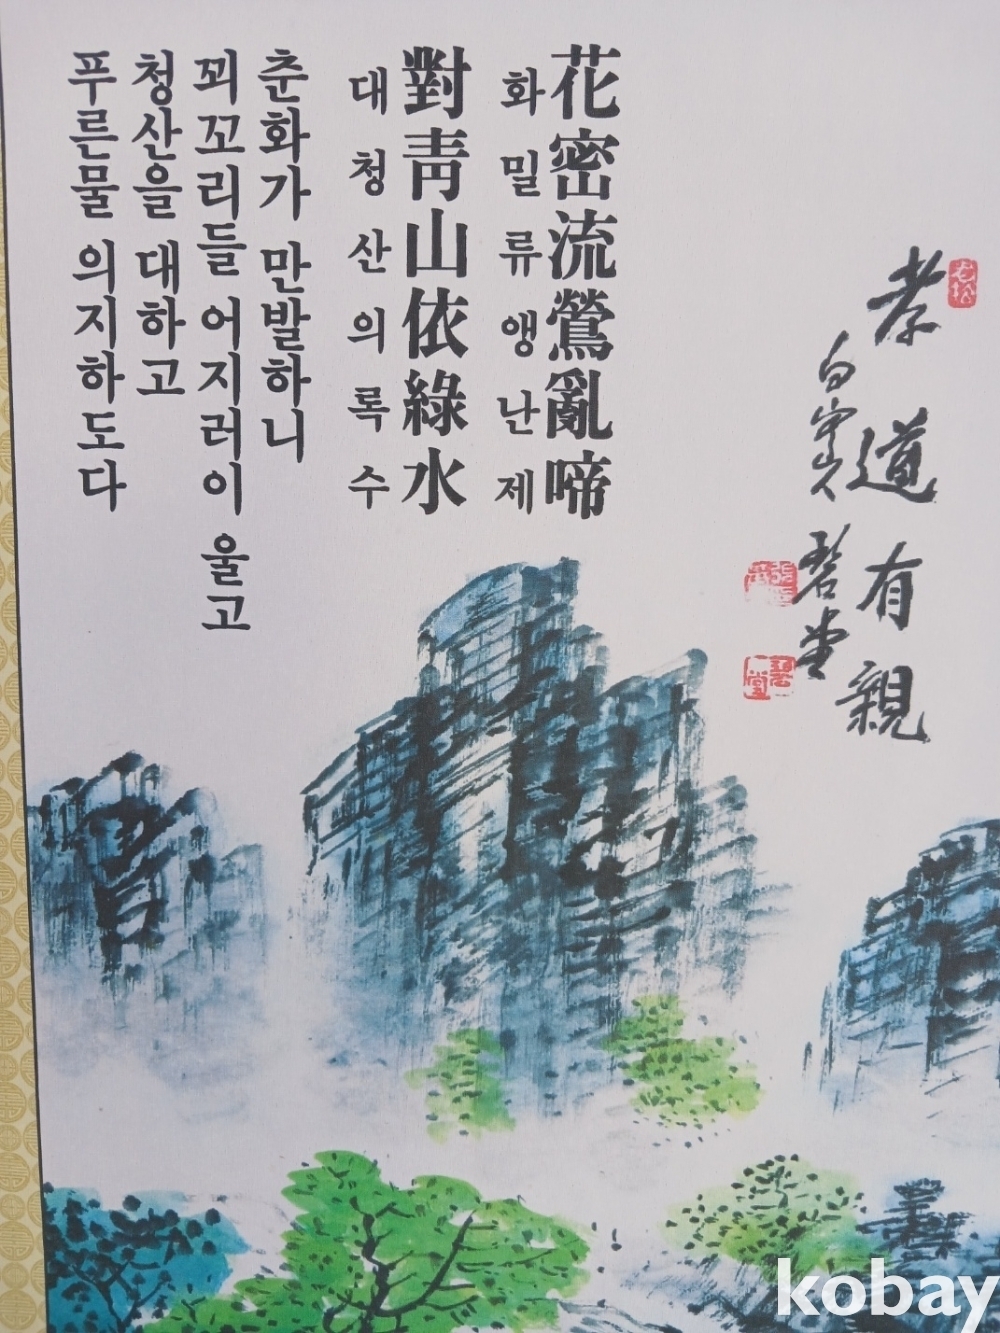 孝道有親
碧堂
花密流鶯亂啼
화밀류앵난제
對靑山依綠水
대청산의록수
춘화가 만발하니
꾀꼬리들 어지러이 울고
청산을 대하고
푸른물 의지하도다
kobay